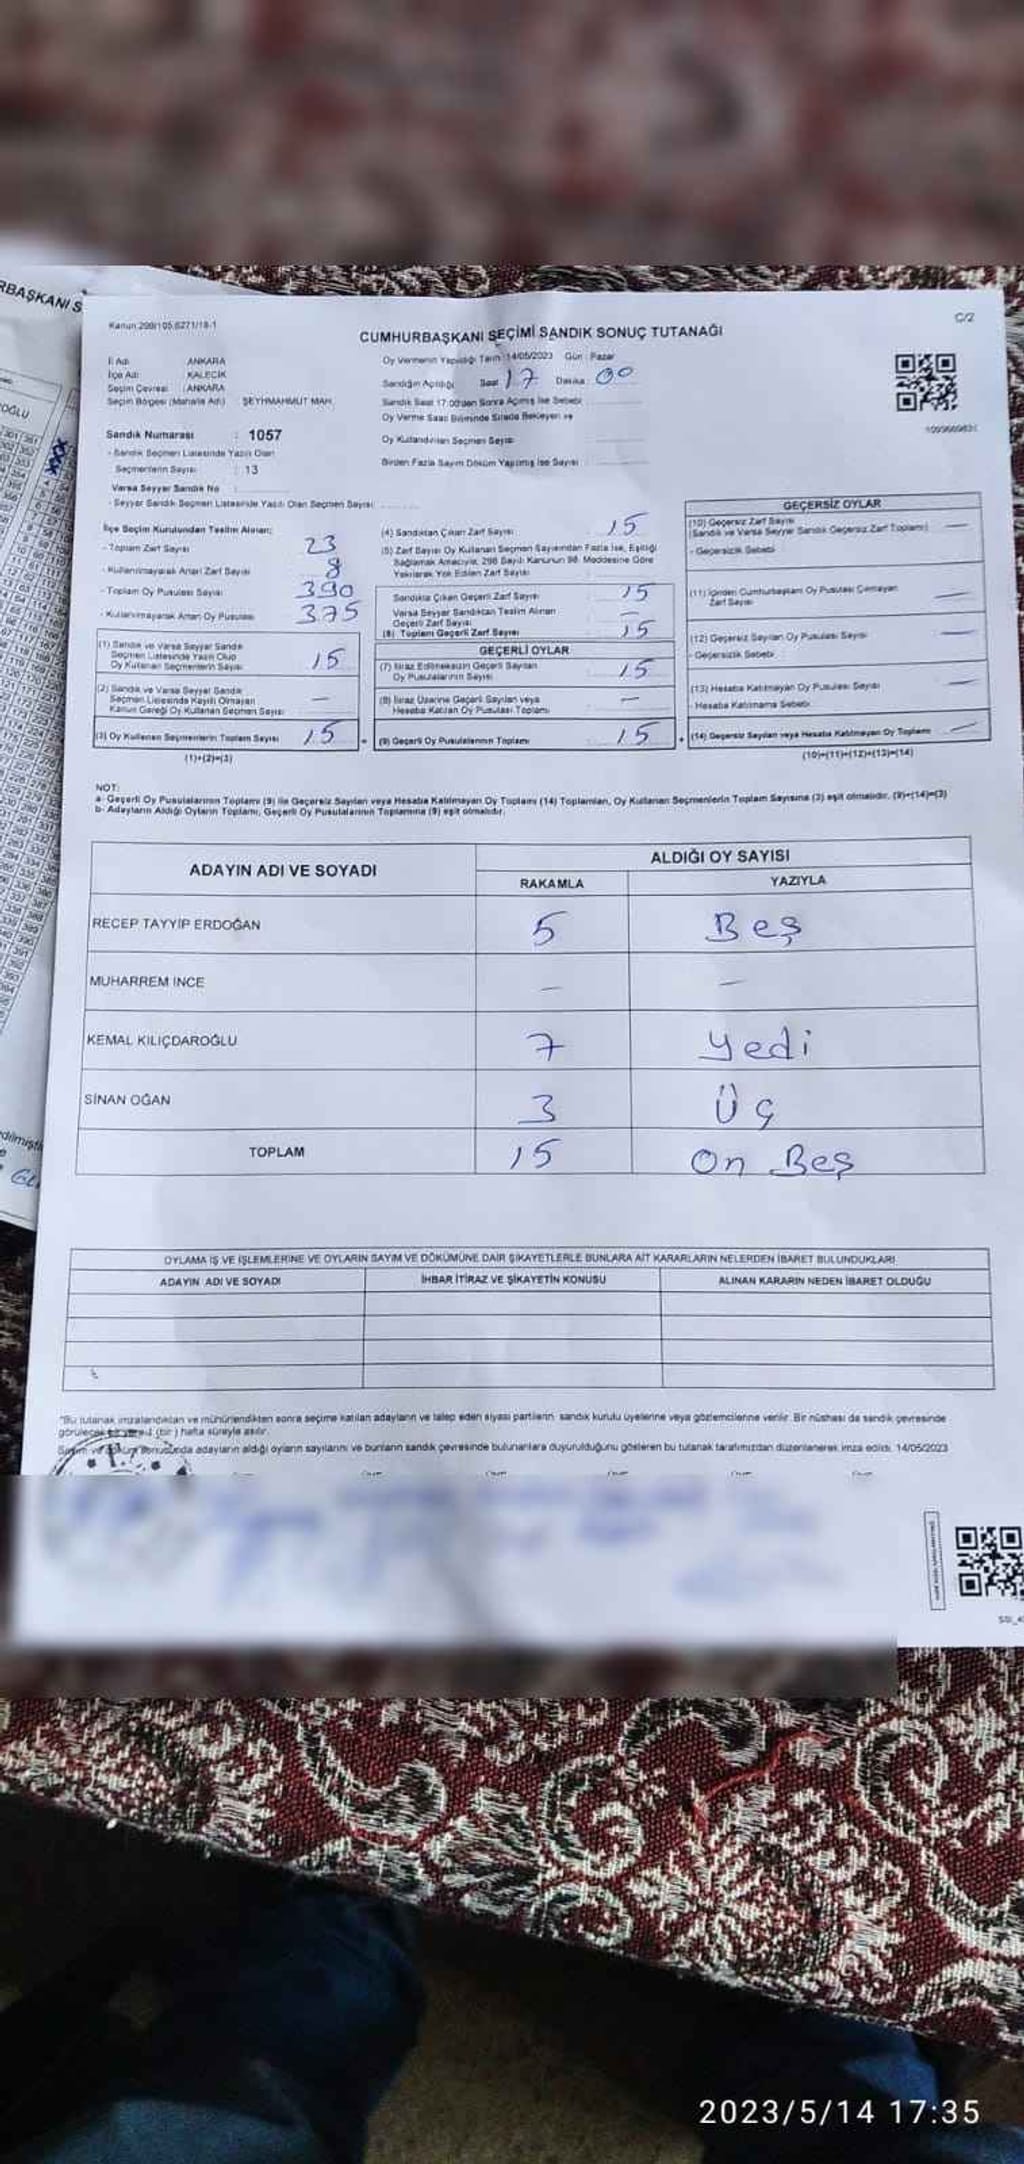 RBAŞKANI S
Kanun 298/105.6271/18-1
C/2
CUMHURBAŞKANI SEÇİMİ SANDIK SONUÇ TUTANAĞI
İl Adı ANKARA
İlçe Adı KALECİK
Seçim Çevresi ANKARA
Seçim Bölgesi (Mahalle Adı) ŞEYHMAHMUT MAH.
Oy Vermenin Yapıldığı Tarih 14/05/2023 Gün Pazar
Sandığın Açıldığı Saat 17 Dakika 00
Sandık Saat 17:00'den Sonra Açılmış İse Sebebi
Oy Verme Saati Bitiminde Sırada Bekleyen ve
Oy Kullandırılan Seçmen Sayısı
Birden Fazla Sayım Döküm Yapılmış İse Sayısı
Sandık Numarası : 1057
- Sandık Seçmen Listesinde Yazılı Olan
Seçmenlerin Sayısı : 13
Varsa Seyyar Sandık No
- Seyyar Sandık Seçmen Listesinde Yazılı Olan Seçmen Sayısı
İlçe Seçim Kurulundan Teslim Alınan;
- Toplam Zarf Sayısı 23
- Kullanılmayarak Artan Zarf Sayısı 8
- Toplam Oy Pusulası Sayısı 390
- Kullanılmayarak Artan Oy Pusulası 375
(1) Sandık ve Varsa Seyyar Sandık
Seçmen Listesinde Yazılı Olup
Oy Kullanan Seçmenlerin Sayısı 15
(2) Sandık ve Varsa Seyyar Sandık
Seçmen Listesinde Kayıtlı Olmayan
Kanun Gereği Oy Kullanan Seçmen Sayısı —
(3) Oy Kullanan Seçmenlerin Toplam Sayısı 15
(1)+(2)=(3)
(4) Sandıktan Çıkan Zarf Sayısı 15
(5) Zarf Sayısı Oy Kullanan Seçmen Sayısından Fazla İse, Eşitliği
Sağlamak Amacıyla, 298 Sayılı Kanunun 98. Maddesine Göre
Yakılarak Yok Edilen Zarf Sayısı
Sandıkta Çıkan Geçerli Zarf Sayısı 15
Varsa Seyyar Sandıktan Teslim Alınan
Geçerli Zarf Sayısı —
(6) Toplam Geçerli Zarf Sayısı 15
GEÇERLİ OYLAR
(7) İtiraz Edilmeksizin Geçerli Sayılan
Oy Pusulalarının Sayısı 15
(8) İtiraz Üzerine Geçerli Sayılan veya
Hesaba Katılan Oy Pusulası Toplamı —
(9) Geçerli Oy Pusulalarının Toplamı 15
GEÇERSİZ OYLAR
(10) Geçersiz Zarf Sayısı
(Sandık ve Varsa Seyyar Sandık Geçersiz Zarf Toplamı) —
- Geçersizlik Sebebi
(11) İçinden Cumhurbaşkanı Oy Pusulası Çıkmayan
Zarf Sayısı —
(12) Geçersiz Sayılan Oy Pusulası Sayısı —
- Geçersizlik Sebebi
(13) Hesaba Katılmayan Oy Pusulası Sayısı —
- Hesaba Katılmama Sebebi
(14) Geçersiz Sayılan veya Hesaba Katılmayan Oy Toplamı —
(10)+(11)+(12)+(13)=(14)
NOT:
a- Geçerli Oy Pusulalarının Toplamı (9) ile Geçersiz Sayılan veya Hesaba Katılmayan Oy Toplamı (14) Toplamları, Oy Kullanan Seçmenlerin Toplam Sayısına (3) eşit olmalıdır. (9)+(14)=(3)
b- Adayların Aldığı Oyların Toplamı, Geçerli Oy Pusulalarının Toplamına (9) eşit olmalıdır.
ADAYIN ADI VE SOYADI
ALDIĞI OY SAYISI
RAKAMLA YAZIYLA
RECEP TAYYİP ERDOĞAN 5 Beş
MUHARREM İNCE — —
KEMAL KILIÇDAROĞLU 7 Yedi
SİNAN OĞAN 3 Üç
TOPLAM 15 On Beş
OYLAMA İŞ VE İŞLEMLERİNE VE OYLARIN SAYIM VE DÖKÜMÜNE DAİR ŞİKAYETLERLE BUNLARA AİT KARARLARIN NELERDEN İBARET BULUNDUKLARI
ADAYIN ADI VE SOYADI İHBAR İTİRAZ VE ŞİKAYETİN KONUSU ALINAN KARARIN NEDEN İBARET OLDUĞU
*Bu tutanak imzalandıktan ve mühürlendikten sonra seçime katılan adayların ve talep eden siyasi partilerin sandık kurulu üyelerine veya gözlemcilerine verilir. Bir nüshası da sandık çevresinde
görülecek bir yere 1 (bir) hafta süreyle asılır.
Sayım ve döküm sonucunda adayların aldığı oyların sayılarını ve bunların sandık çevresinde bulunanlara duyurulduğunu gösteren bu tutanak tarafımızdan düzenlenerek imza edildi. 14/05/2023
2023/5/14 17:35